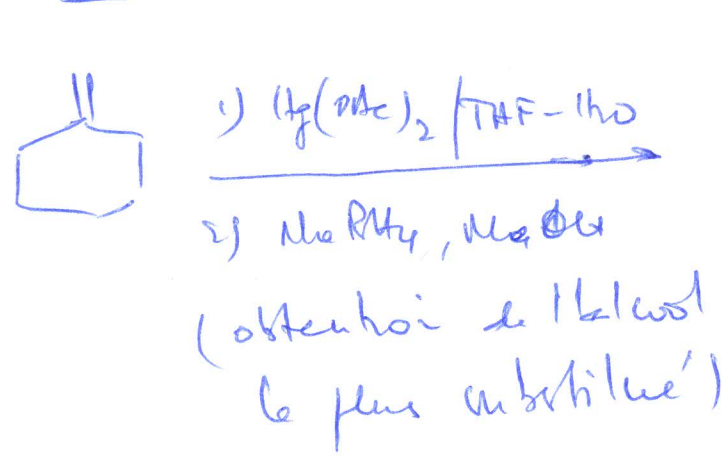 1) Hg(OAc)₂ / THF-H₂O
2) NaBH₄, NaOH
(obtention de l'alcool
le plus substitué)